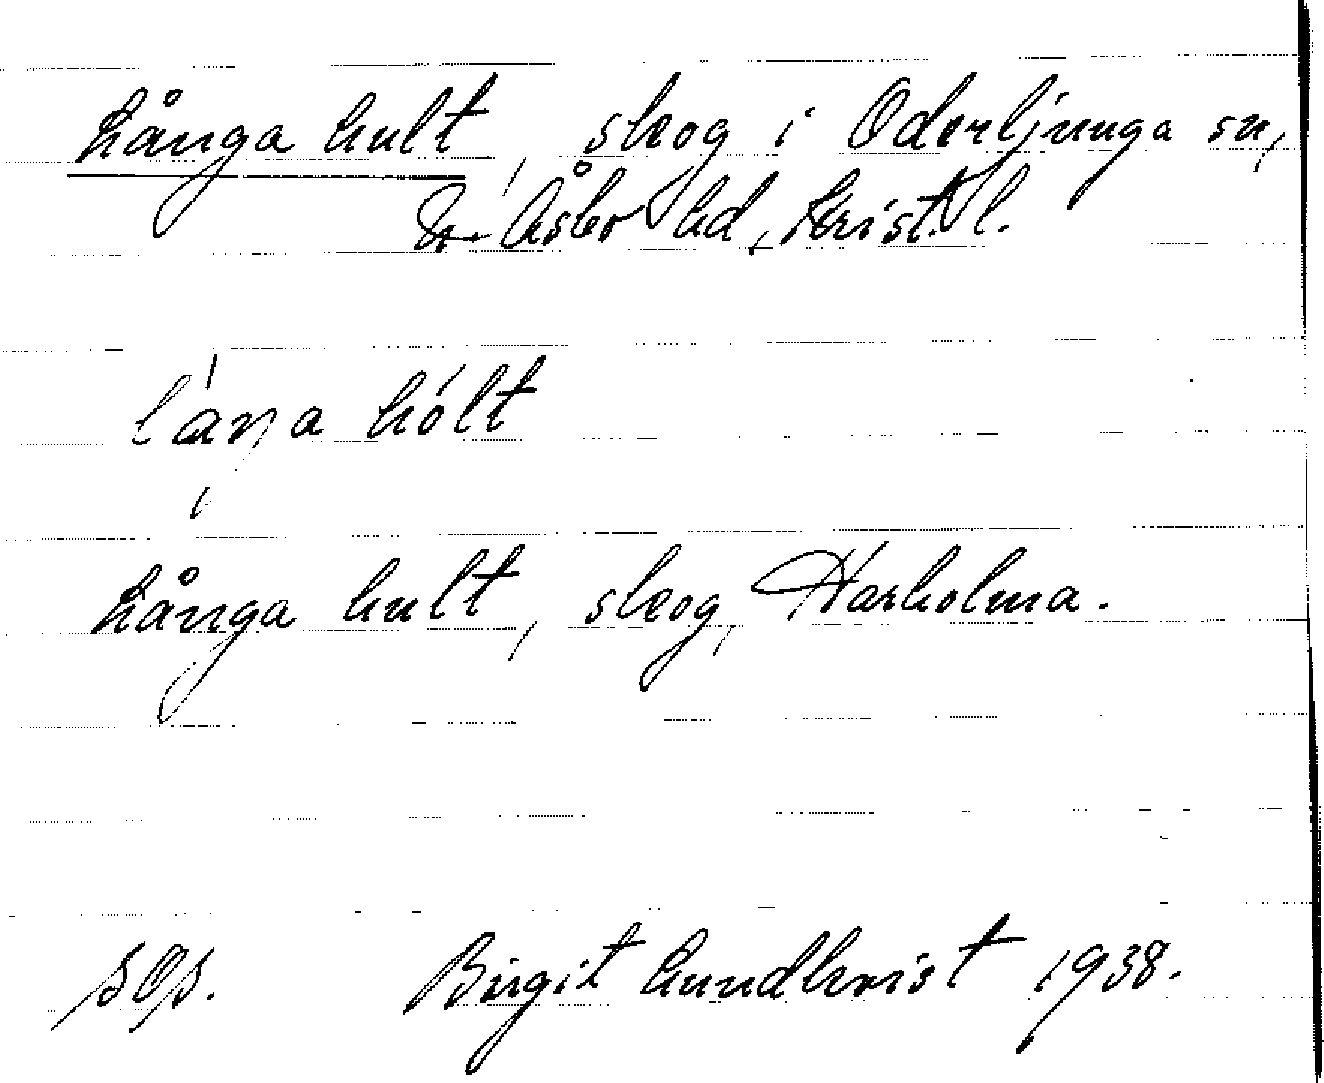 Långa hult, skog i Oderljunga sn,
N. Åsbo hd, Krist. l.
láŋa hólt
Långa hult, skog, Harholma.
Birgit Lundkvist 1938.